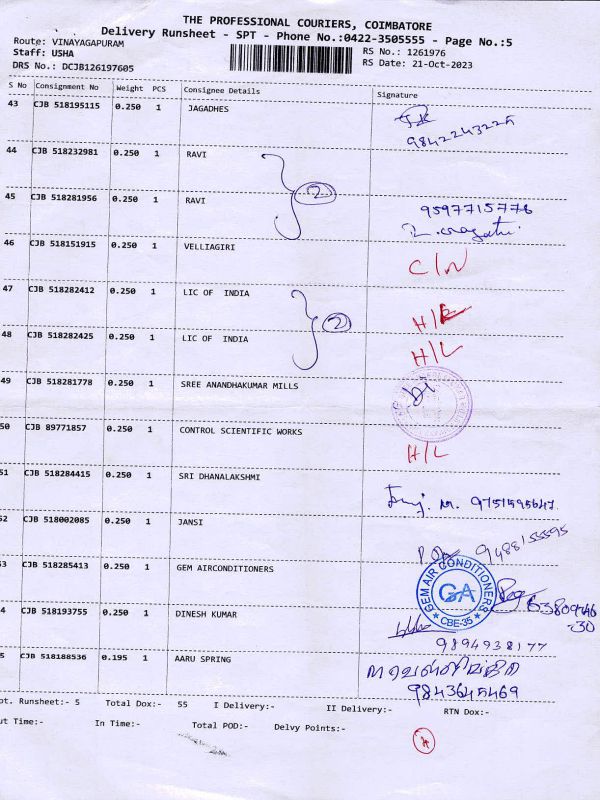 THE PROFESSIONAL COURIERS, COIMBATORE
Delivery Runsheet - SPT - Phone No.:0422-3505555 - Page No.:5
Route: VINAYAGAPURAM
Staff: USHA
RS No.: 1261976
DRS No.: DCJB126197605
RS Date: 21-Oct-2023
S No Consignment No Weight PCS Consignee Details Signature
43 CJB 518195115 0.250 1 JAGADHES
9842243225
44 CJB 518232981 0.250 1 RAVI
2
45 CJB 518281956 0.250 1 RAVI 9597715776
46 CJB 518151915 0.250 1 VELLIAGIRI C/N
47 CJB 518282412 0.250 1 LIC OF INDIA H/L
2
48 CJB 518282425 0.250 1 LIC OF INDIA H/L
49 CJB 518281778 0.250 1 SREE ANANDHAKUMAR MILLS
50 CJB 89771857 0.250 1 CONTROL SCIENTIFIC WORKS H/L
51 CJB 518284415 0.250 1 SRI DHANALAKSHMI
9751595647
52 CJB 518002085 0.250 1 JANSI 9488155595
53 CJB 518285413 0.250 1 GEM AIRCONDITIONERS
GEM AIR CONDITIONERS
GA
CBE-35
63809746
-30
54 CJB 518193755 0.250 1 DINESH KUMAR
9894938177
55 CJB 518188536 0.195 1 AARU SPRING
9843645469
pt. Runsheet:- 5 Total Dox:- 55 I Delivery:- II Delivery:- RTN Dox:-
ut Time:- In Time:- Total POD:- Delvy Points:-